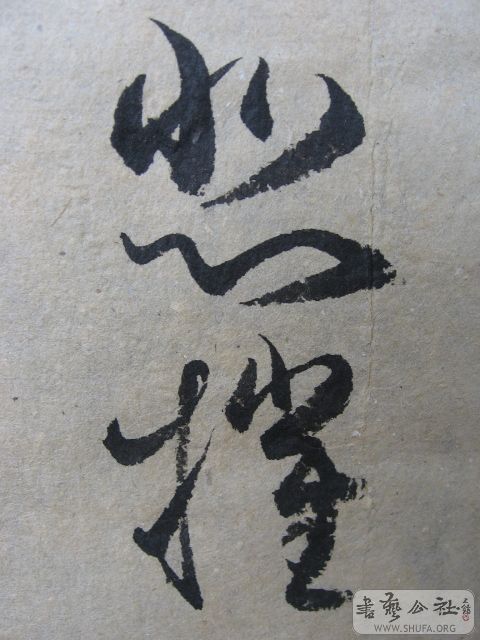 悲
摧
書藝公社
WWW.SHUFA.ORG